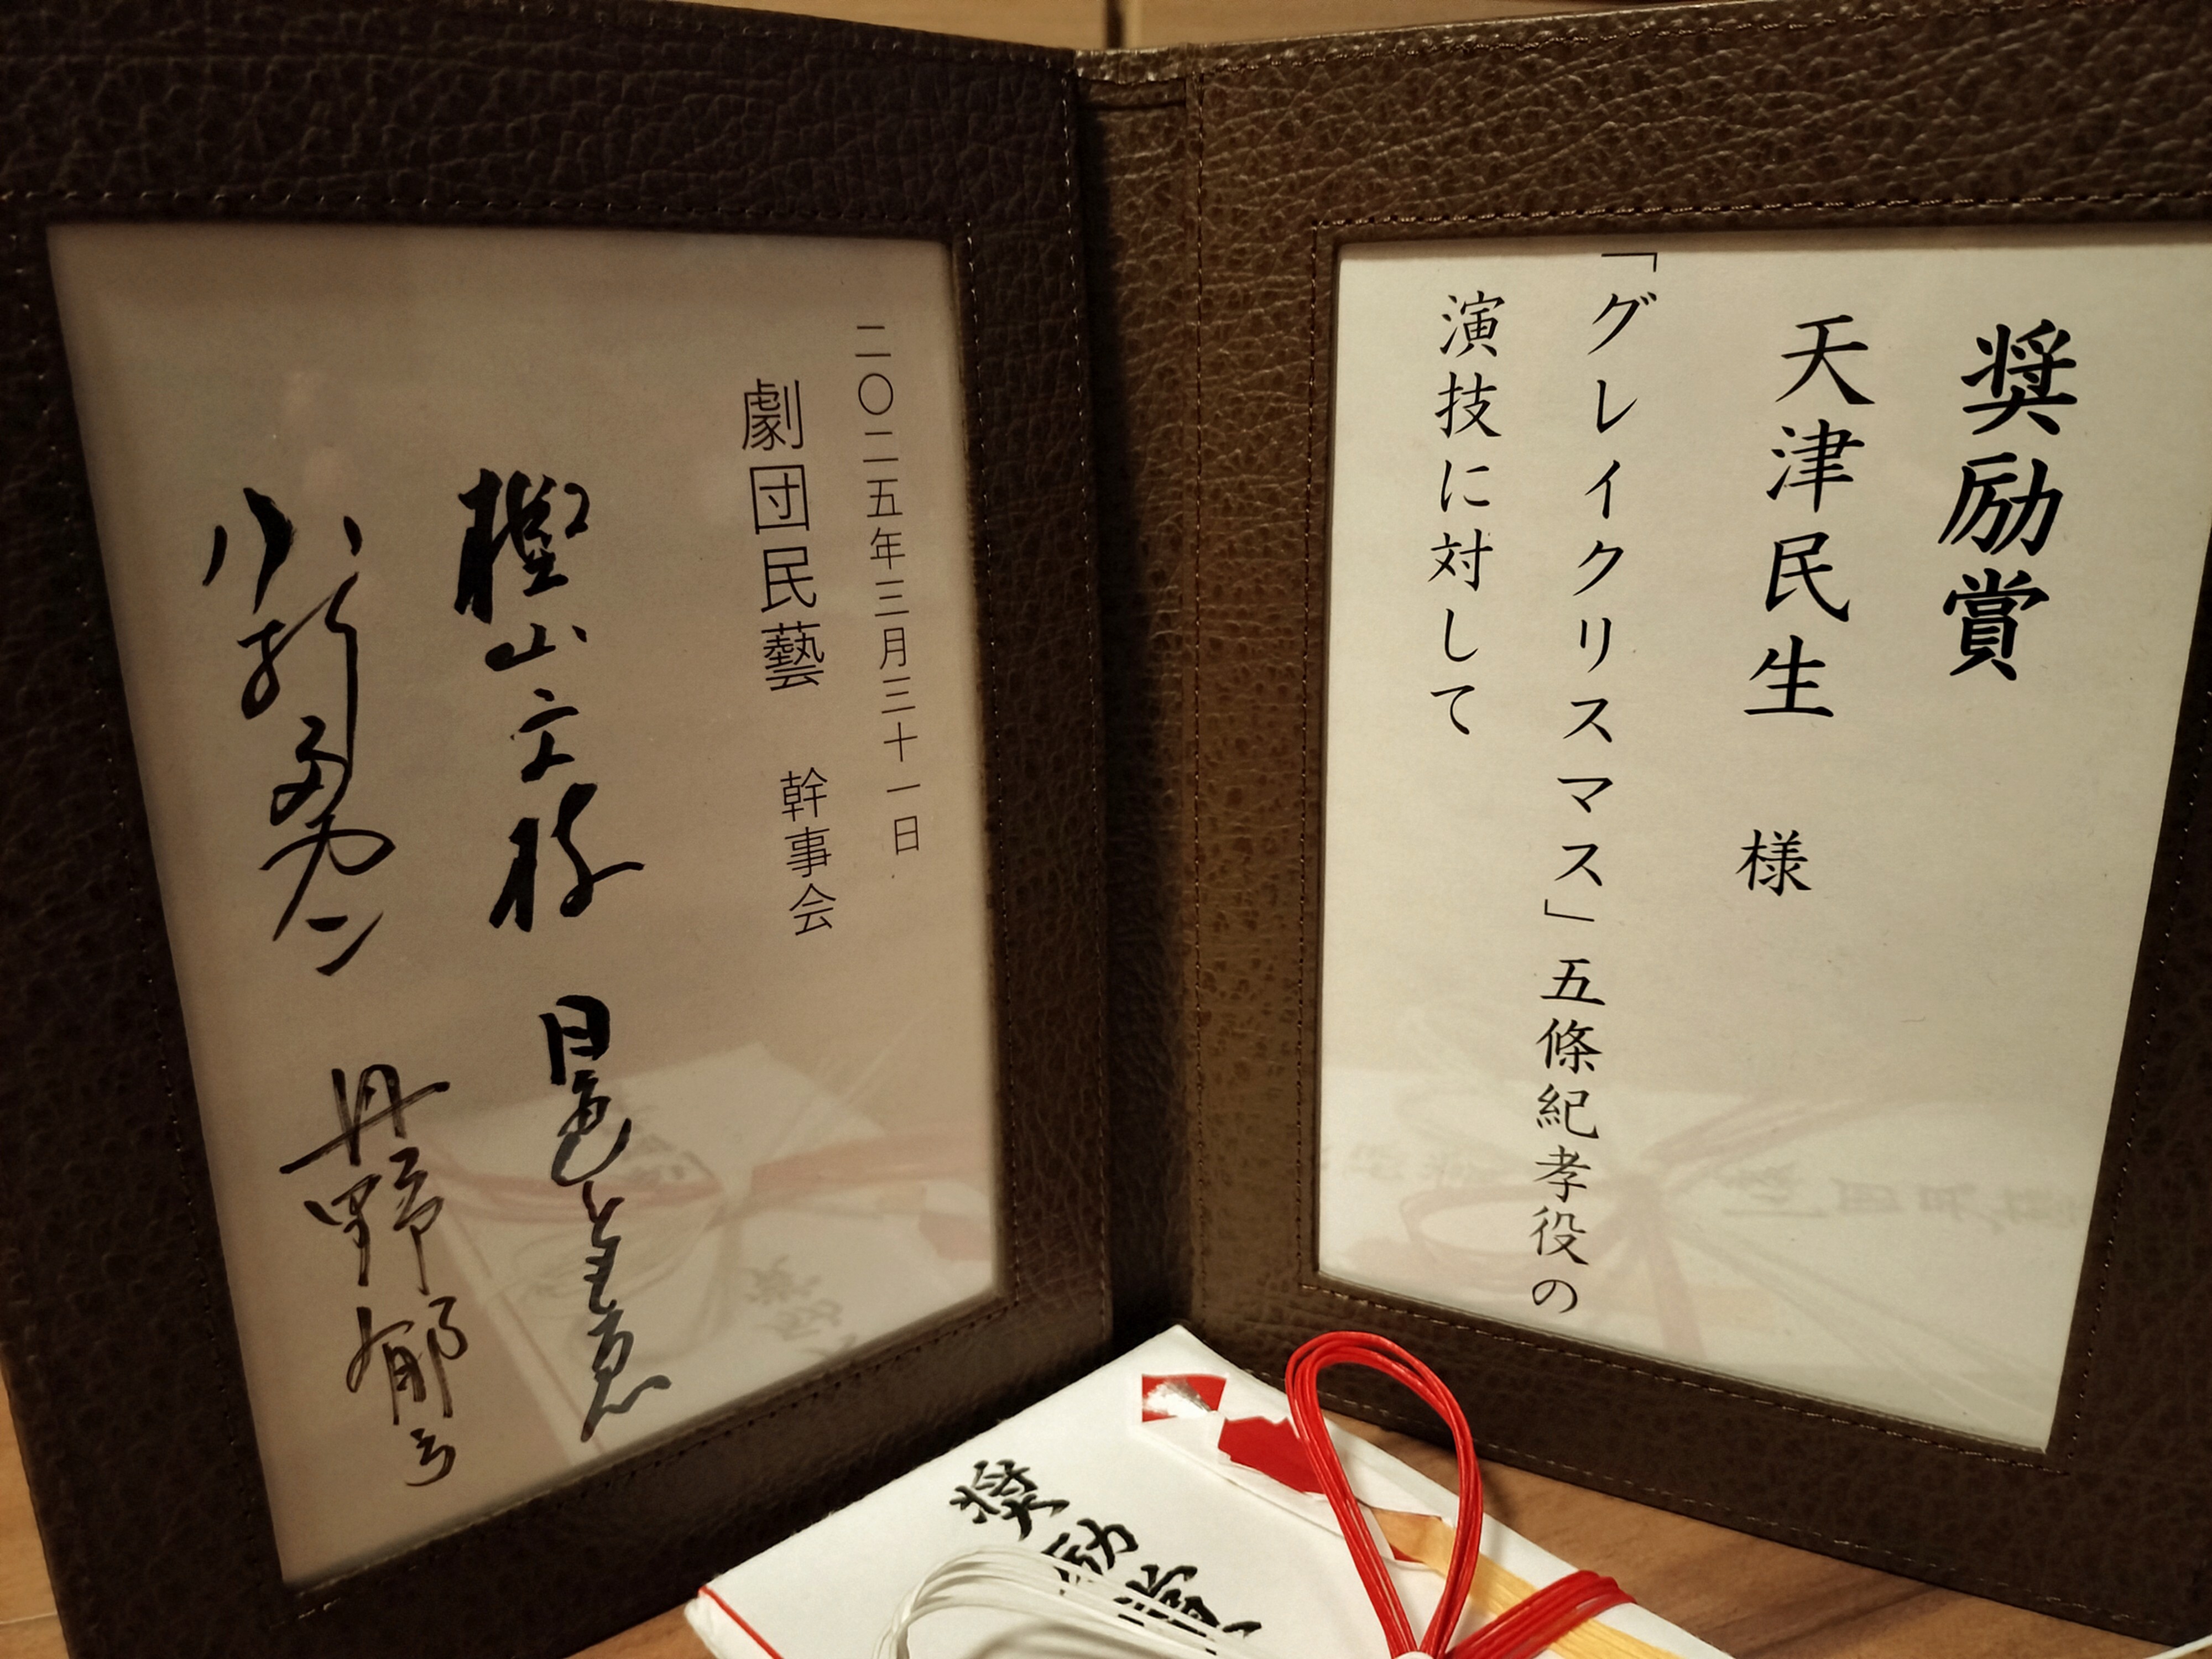 奨励賞
天津民生　様
「グレイクリスマス」五條紀孝役の
演技に対して
二〇二五年三月三十一日
劇団民藝　幹事会
樫山文枝
日色ともゑ
丹野郁弓
奨励賞